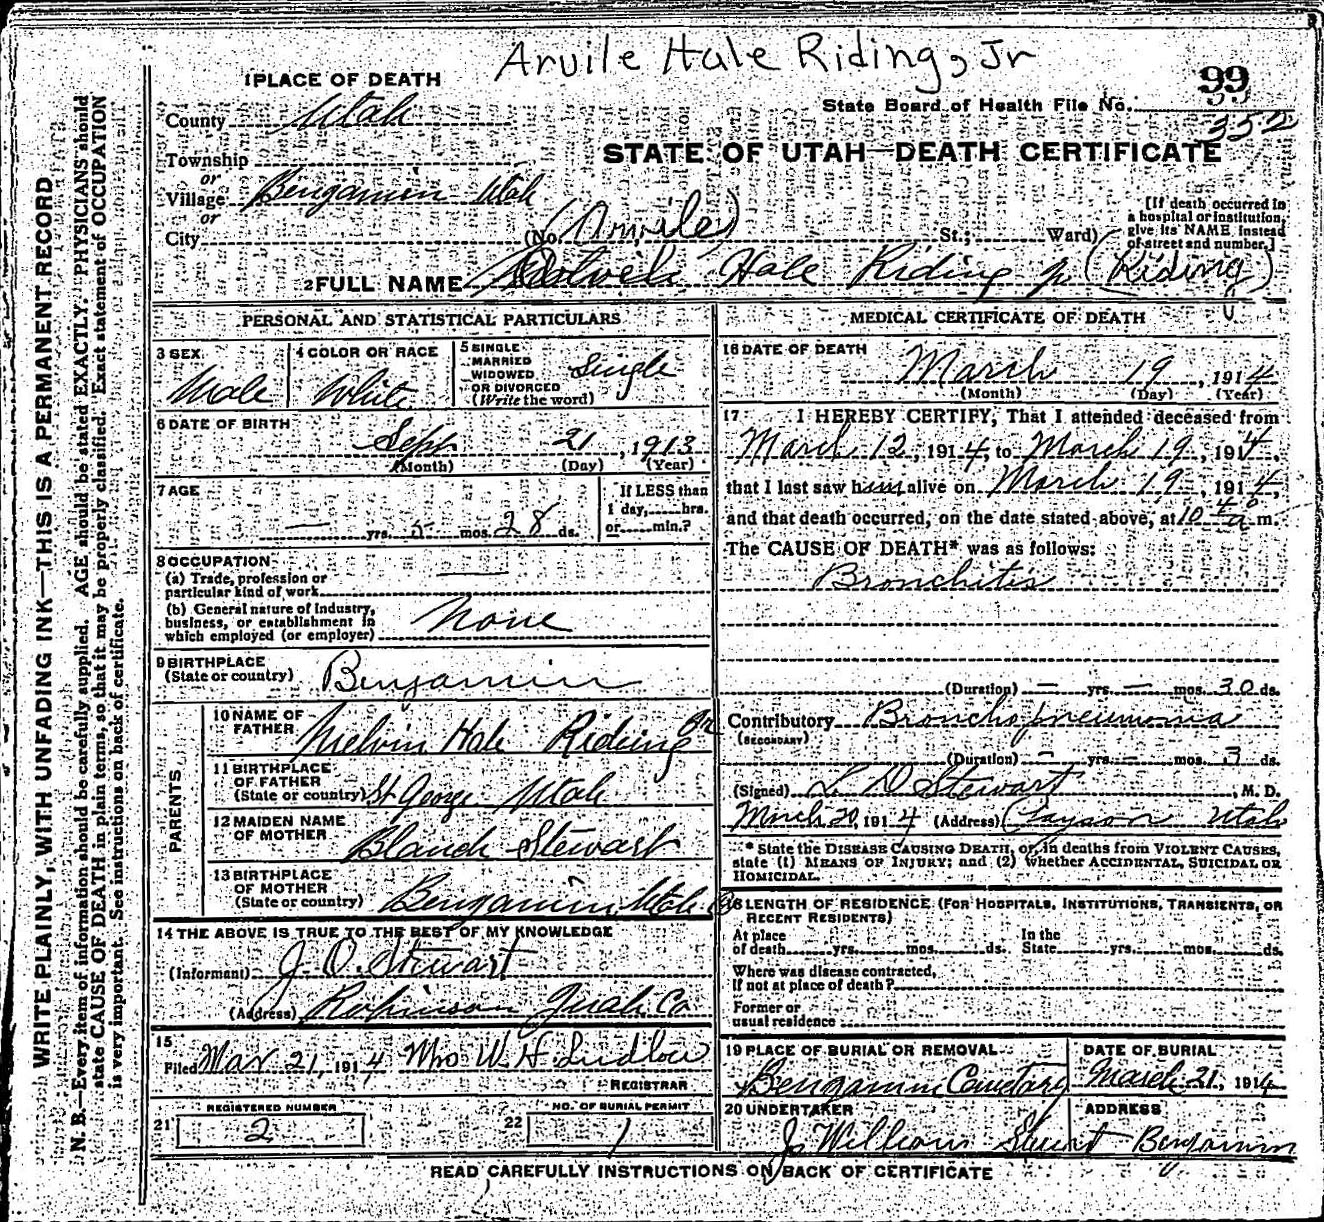 Arvile Hale Riding, Jr
1 PLACE OF DEATH
99
State Board of Health File No.
352
County Utah
STATE OF UTAH—DEATH CERTIFICATE
Township
or
Village Benjamin Utah
or
City (No. (Arvile) St.; Ward)
[If death occurred in
a hospital or institution,
give its NAME instead
of street and number.]
2 FULL NAME Hale Riding jr (Riding)
PERSONAL AND STATISTICAL PARTICULARS
3 SEX
Male
4 COLOR OR RACE
White
5 SINGLE
MARRIED
WIDOWED
OR DIVORCED
(Write the word)
Single
6 DATE OF BIRTH
Sept 21, 1913
(Month) (Day) (Year)
7 AGE
— yrs. 5 mos. 28 ds.
If LESS than
1 day, hrs.
or min.?
8 OCCUPATION
(a) Trade, profession or
particular kind of work —
(b) General nature of industry,
business, or establishment in
which employed (or employer) None
9 BIRTHPLACE
(State or country) Benjamin
PARENTS
10 NAME OF
FATHER Melvin Hale Riding Jr
11 BIRTHPLACE
OF FATHER
(State or country) St George Utah
12 MAIDEN NAME
OF MOTHER Blanch Stewart
13 BIRTHPLACE
OF MOTHER
(State or country) Benjamin, Utah Co
14 THE ABOVE IS TRUE TO THE BEST OF MY KNOWLEDGE
(Informant) J. O. Stewart
(Address) Robinson Juab Co
15
Filed Mar 21, 1914 Mrs W. H. Ludlow
REGISTRAR
REGISTERED NUMBER
21 2
NO. OF BURIAL PERMIT
22 1
MEDICAL CERTIFICATE OF DEATH
16 DATE OF DEATH
March 19, 1914
(Month) (Day) (Year)
17 I HEREBY CERTIFY, That I attended deceased from
March 12, 1914, to March 19, 1914,
that I last saw him alive on March 19, 1914,
and that death occurred, on the date stated above, at 10 a m.
The CAUSE OF DEATH* was as follows:
Bronchitis
(Duration) — yrs. — mos. 30 ds.
Contributory Broncho pneumonia
(SECONDARY)
(Duration) — yrs. — mos. 3 ds.
(Signed) L. D. Stewart, M. D.
March 20, 1914 (Address) Payson Utah
* State the DISEASE CAUSING DEATH, or, in deaths from VIOLENT CAUSES,
state (1) MEANS OF INJURY; and (2) whether ACCIDENTAL, SUICIDAL OR
HOMICIDAL.
18 LENGTH OF RESIDENCE (FOR HOSPITALS, INSTITUTIONS, TRANSIENTS, OR
RECENT RESIDENTS)
At place
of death yrs. mos. ds.
In the
State yrs. mos. ds.
Where was disease contracted,
If not at place of death?
Former or
usual residence
19 PLACE OF BURIAL OR REMOVAL
Benjamin Cemetary
DATE OF BURIAL
March 21, 1914
20 UNDERTAKER
J. William Stuart
ADDRESS
Benjamin
READ CAREFULLY INSTRUCTIONS ON BACK OF CERTIFICATE
WRITE PLAINLY, WITH UNFADING INK—THIS IS A PERMANENT RECORD
N. B.—Every item of information should be carefully supplied. AGE should be stated EXACTLY. PHYSICIANS should
state CAUSE OF DEATH in plain terms, so that it may be properly classified. Exact statement of OCCUPATION
is very important. See instructions on back of certificate.